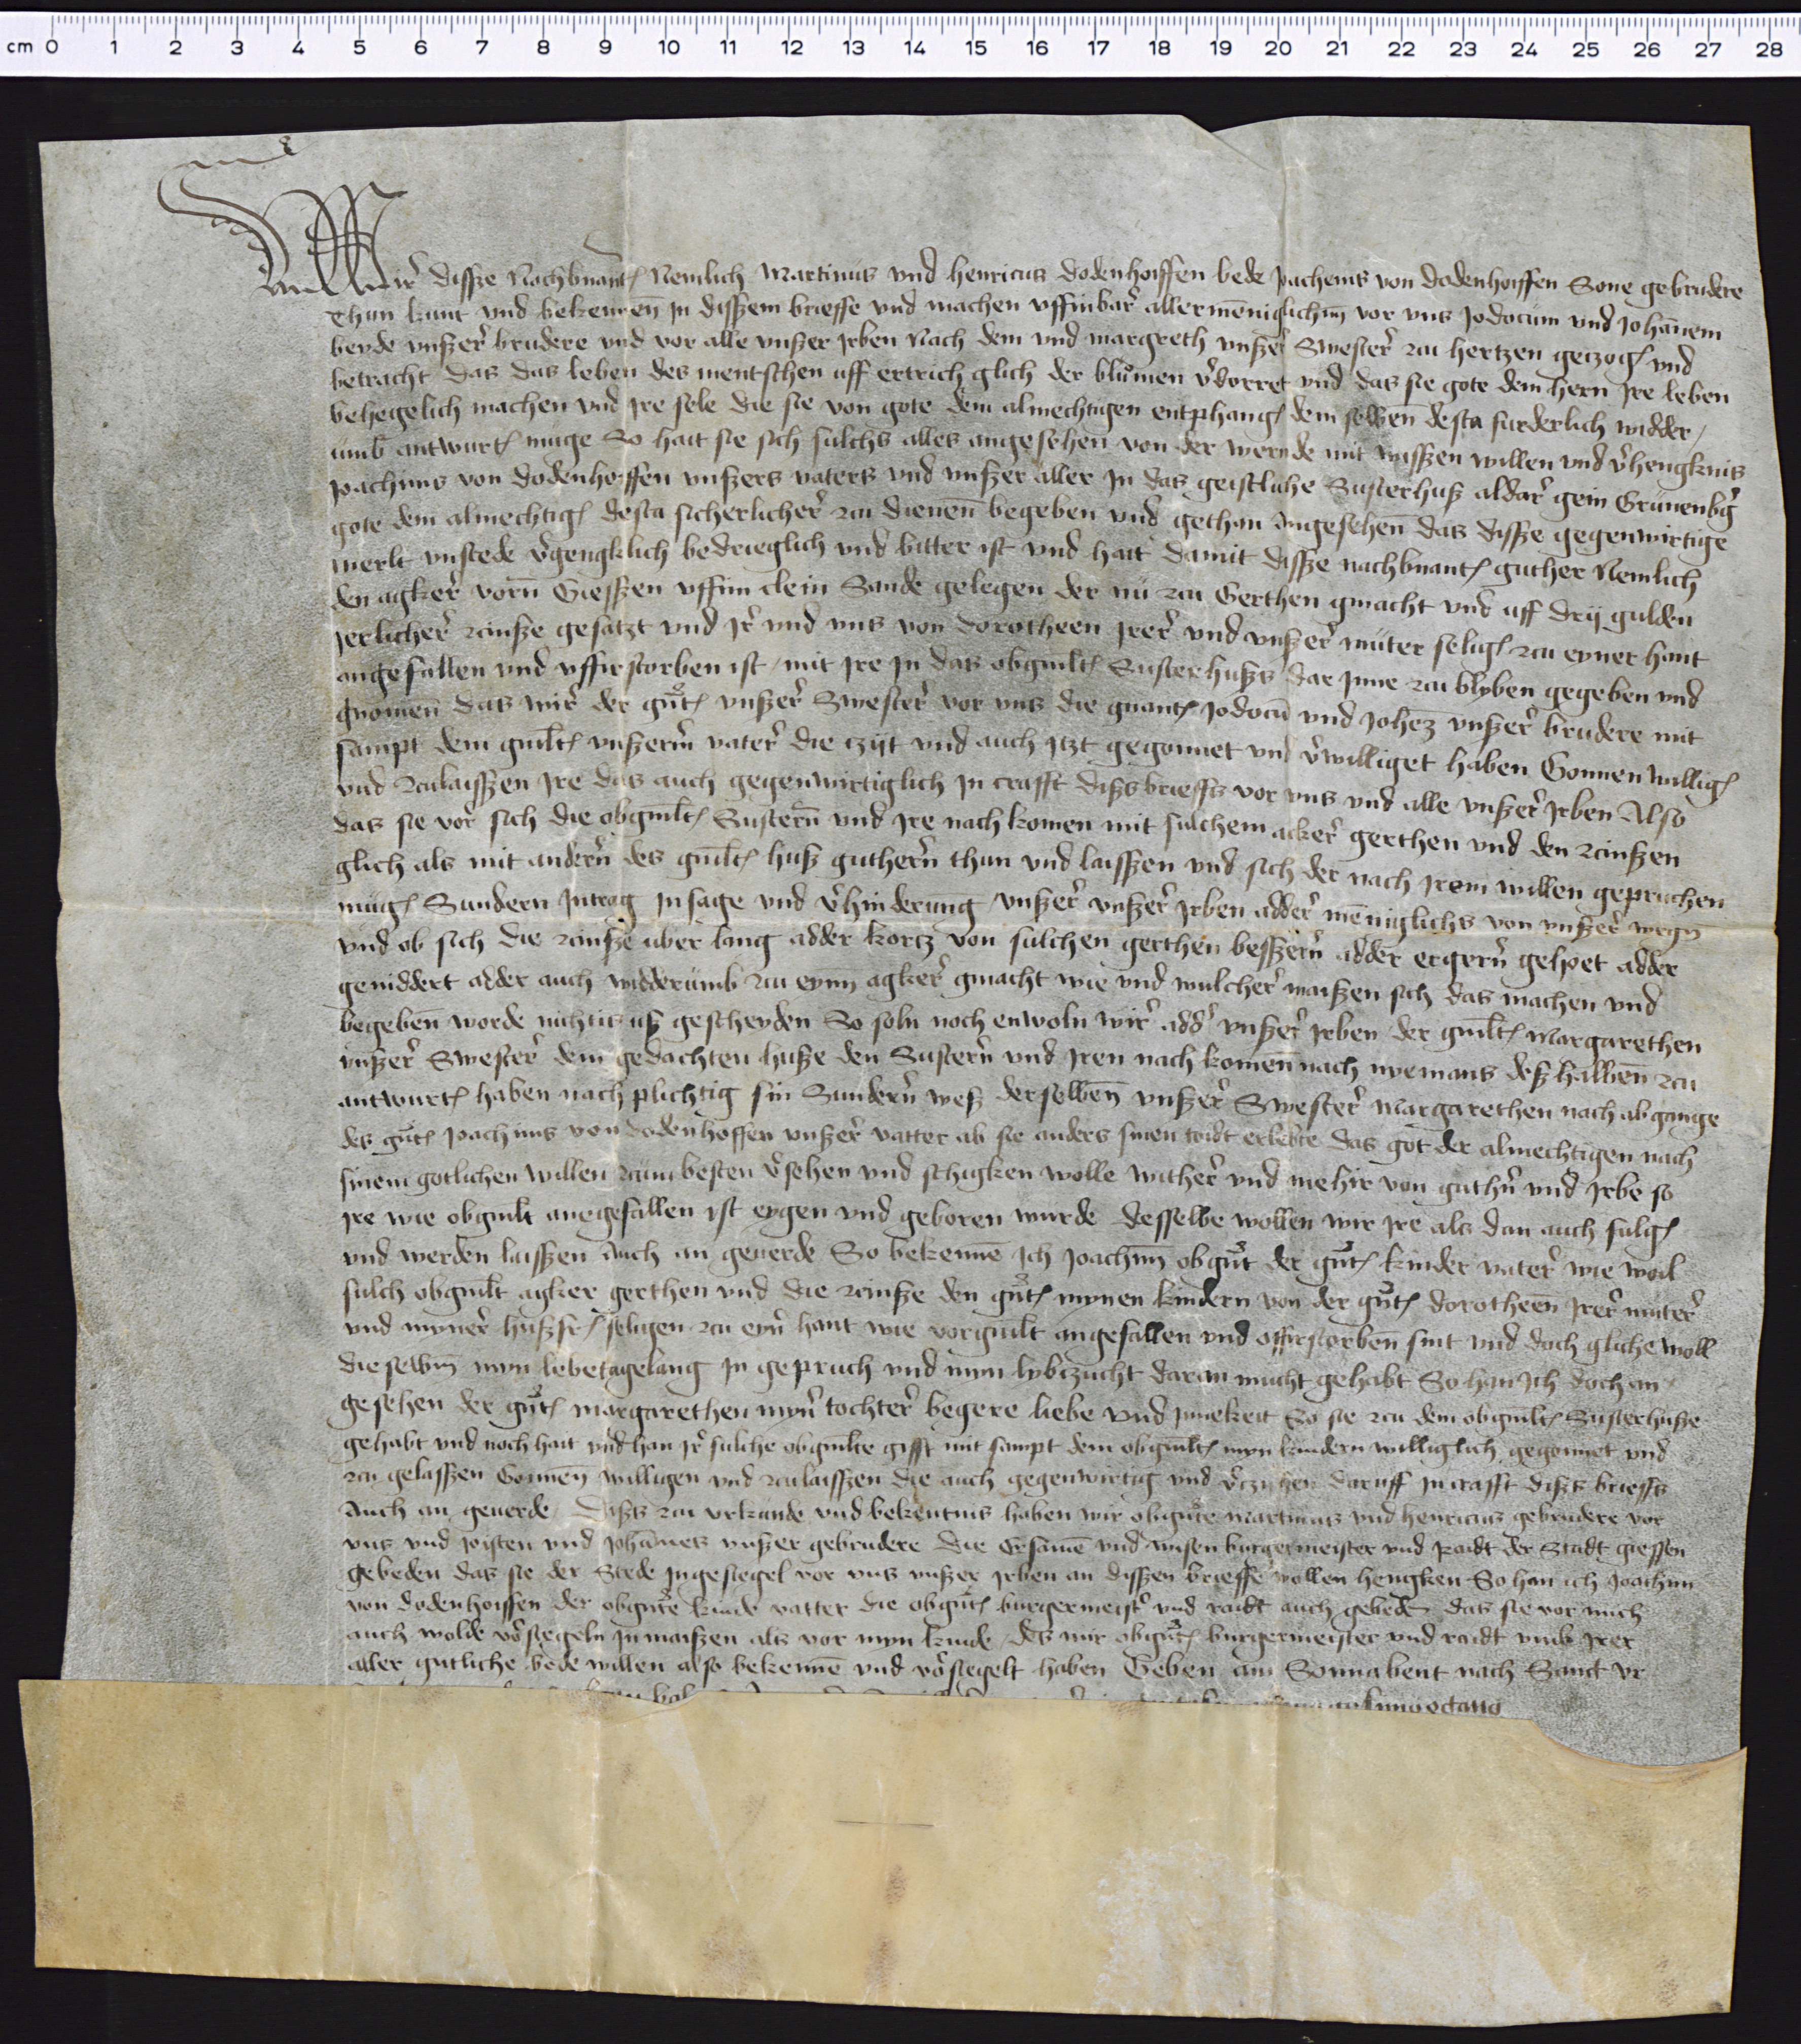 cm 0 1 2 3 4 5 6 7 8 9 10 11 12 13 14 15 16 17 18 19 20 21 22 23 24 25 26 27 28
Wir disse Nachbnant(en) Nemlich Martinus und Henricus Dodenhoiffen bede Joachems von Dodenhoiffen Sone gebrudere
Thun kunt und bekennen In dissem brieffe und machen uffinbar allermenniglichin vor uns Jodocum und Johannem
beyde unszer brudere und vor alle unszer Jrben Nach dem und margreth unszer Swester zu hertzen geczog(en) und
betracht das das leben des mentschen uff ertrich glich der blumen v(er)dorret und das sie gote dem hern Jre leben
behegelich machen und Jre sele die sie von gote dem almechtigen entphang(en) dem selben desta furderlich widder
umb antwurt(en) muge So hait sie sich sulchs alles angesehen von der wernde mit wissen willen und v(er)hengknis
Joachims von Dodenhoiffen unszers vaters und unszer aller Jn das geistliche Susterhusz aldar gein Grunenb(er)g
gote dem almechtig(en) desta sicherlicher zu dienen begeben und gethan Angesehen das disse gegenwirtige
werlt unstede v(er)gengklich bedrieglich und bitter ist und hait damit disse nachbnant(en) guther Nemlich
den agker vorn Giessen uffim clein Sande gelegen der nu zu Gerthen gmacht und uff drij gulden
Jerlicher zinsze gesatzt und Jr und uns von Dorotheen Jrer und unszer muter selig(en) zu eyner hant
angefallen und uffirstorben ist mit Jre Jn das obgnilt(en) Susterhusz dar Jnne zu blyben gegeben und
gnomen das wir der gnt(en) unszer Swester vor uns die gnant(en) Jodocu(m) und Joh(ann)em unszer brudere mit
sampt dem gnilt(en) unszerm vater die czijt und auch Jtzt gegonnet und v(er)williget haben Gonnen willig(en)
und zulaiszen Jre das auch gegenwirtiglich Jn crafft disz brieffs vor uns und alle unszer Jrben Also
das sie vor sich die obgnilt(en) Sustern und Jre nach komen mit sulchem acker gerthen und den zinszen
glich als mit andern des gnilt(en) husz guthern thun und laiszen und sich der nach Jrem willen gepruchen
mug(en) Sundern Jntrag Jnsage und v(er)hinderung unszer unszer Jrben adder menniglichs von unszer wegin
und ob sich die zinsze uber lang adder kortz von sulchen gerthen besszern adder ergern gehoet adder
geniddert adder auch widderumb zu eynn agker gmacht wie und wulcher maiszen sich das machen und
begeben worde nichtis usz gescheyden So soln noch enwoln wir add(er) unszer Jrben der gnilt(en) Margarethen
unszer Swester dem gedachten husze den Sustern und Jren nach komen nach nyemans desz halben zu
antwurt(en) haben nach plichtig sin Sundern wesz derselben unszer Swester Margarethen nach abgange
des gnt(en) Joachims von Dodenhoffen unszer vatter ab sie anders sinen toidt erlebte das got der almechtigen nach
sinem gotlichen willen zum besten v(er)sehen und schigken wolle wither und mehir von guthern und Jrbe so
Jre wie obgnilt anegefallen ist eygen und geboren wurde desselbe wollen wir Jre als dan auch fulg(en)
und werden laiszen Auch an geuerde So bekenne Ich Joachim obgnt der gnt(en) kinder vater wie woil
sulch obgnilt agker gerthen und die zinsze den gnt(en) mynen kindern von der gnt(en) Dorotheen Jrer muter
und myner huszfr(auwen) seligen zu eyn(er) hant wie vorgnilt angefallen und uffirstorben sint und doch gliche woll
dieselbin myn lebetagelang Jn gepruch und myn lybczucht daran mucht gehabt So han Jch doch an
gesehen der gnt(en) Margarethen myn(er) tochter begere liebe und Jnnekeit So sie zu dem obgnilt(en) Susterhusze
gehabt und noch hait und han Jr sulche obgnilte gifft mit sampt dem obgnilt(en) myn kindern williglich gegonnet und
zu gelasszen Gonnen willigen und zulaiszen die auch gegenwirtig und v(er)czyhen daruff Jn crafft disz brieffs
Auch an geuerde Disz zu urkunde und bekentnis haben wir obgnte Martinus und Henricus gebrudere vor
uns und Josten und Johannes unszer gebrudere die Ersame und wisen burgermeister und Raidt der Stadt giessen
gebeden das sie der Stede Jngesiegel vor uns unszer Jrben an dissen brieffe wollen hengken So han ich Joachim
von Dodenhoiffen der obgnte kinde vatter die obgnt(en) burgermeist(er) und raidt auch gebeden das sie vor mich
auch wolde v(er)siegeln Jn maiszen als vor myn kinde des wir obgnt(en) burgermeister und raidt umb Jrer
aller gutliche bede willen also bekenne und v(er)siegelt haben Geben am Sonnabent nach Sanct Vr